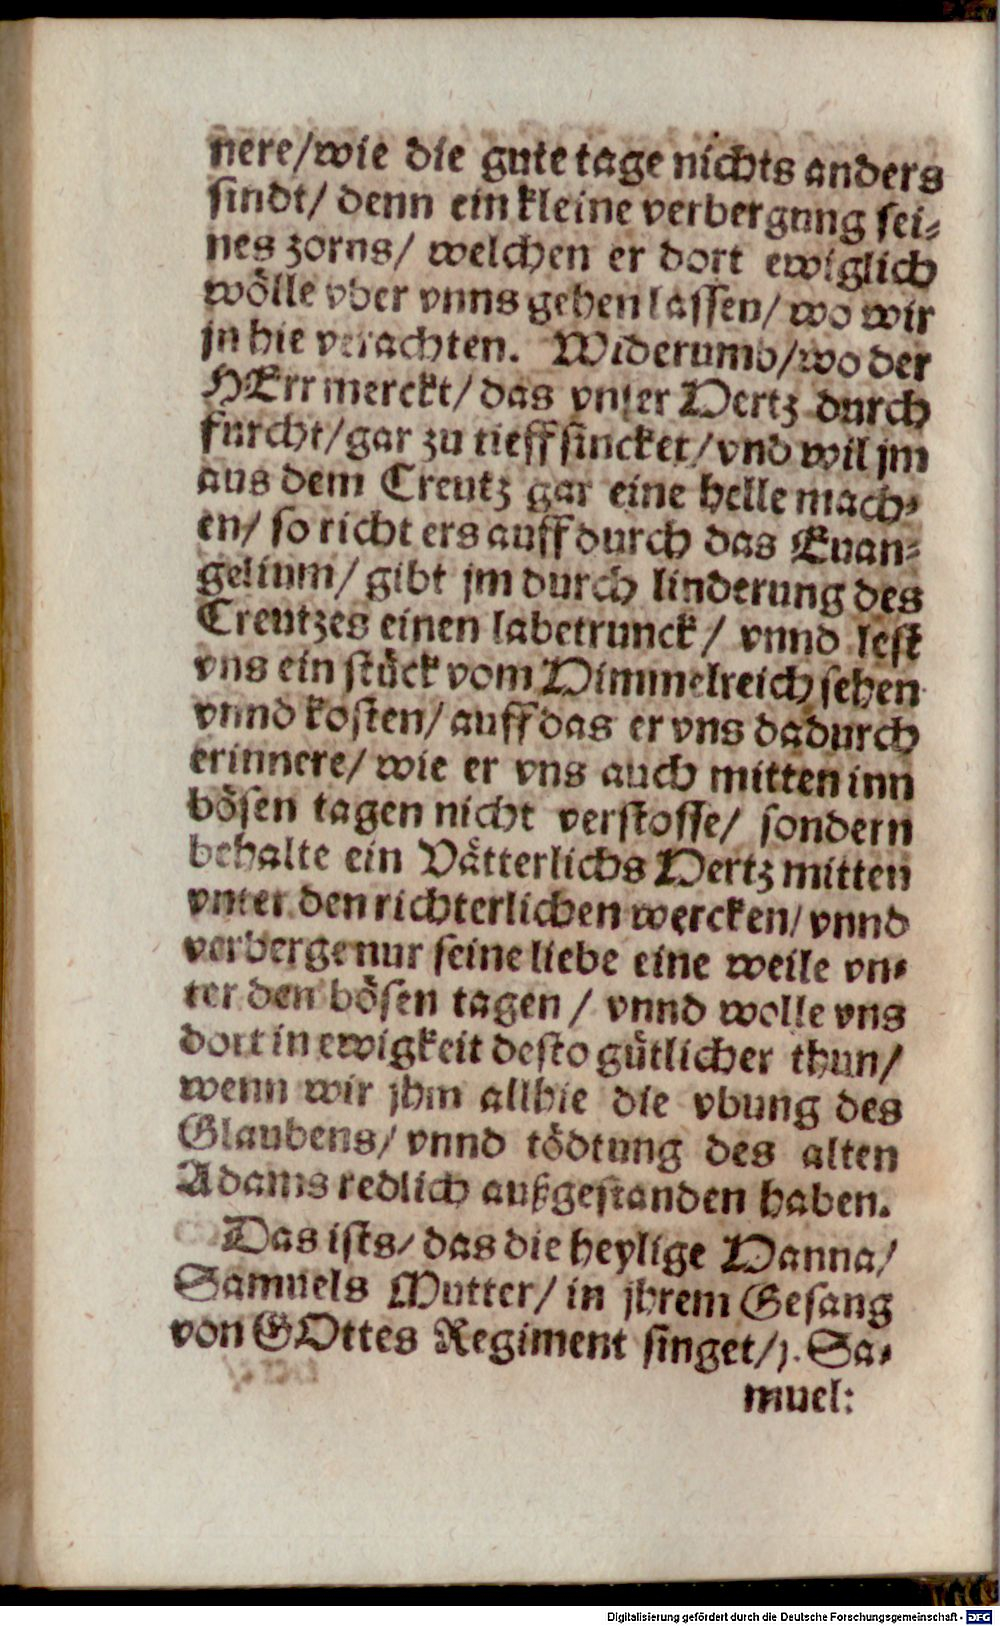 nere/wie die gute tage nichts anders
sindt/ denn ein kleine verbergung sei-
nes zorns/ welchen er dort ewiglich
wölle vber vnns gehen lassen/ wo wir
jn hie verachten. Widerumb/wo der
HErr merckt/ das vnser Hertz durch
furcht/gar zu tieff sincket/vnd wil jm
aus dem Creutz gar eine helle mach-
en/ so richt ers auff durch das Euan-
gelium/ gibt jm durch linderung des
Creutzes einen labetrunck/ vnnd lest
vns ein stück vom Himmelreich sehen
vnnd kosten/ auff das er vns dadurch
erinnere/ wie er vns auch mitten inn
bösen tagen nicht verstosse/ sondern
behalte ein Vätterlichs Hertz mitten
vnter den richterlichen wercken/ vnnd
verberge nur seine liebe eine weile vn-
ter den bösen tagen/ vnnd wolle vns
dort in ewigkeit desto gütlicher thun/
wenn wir jhm allhie die vbung des
Glaubens/ vnnd tödtung des alten
Adams redlich außgestanden haben.
Das ists/ das die heylige Hanna/
Samuels Mutter/ in jhrem Gesang
von GOttes Regiment singet/1. Sa-
muel:
Digitalisierung gefördert durch die Deutsche Forschungsgemeinschaft - DFG